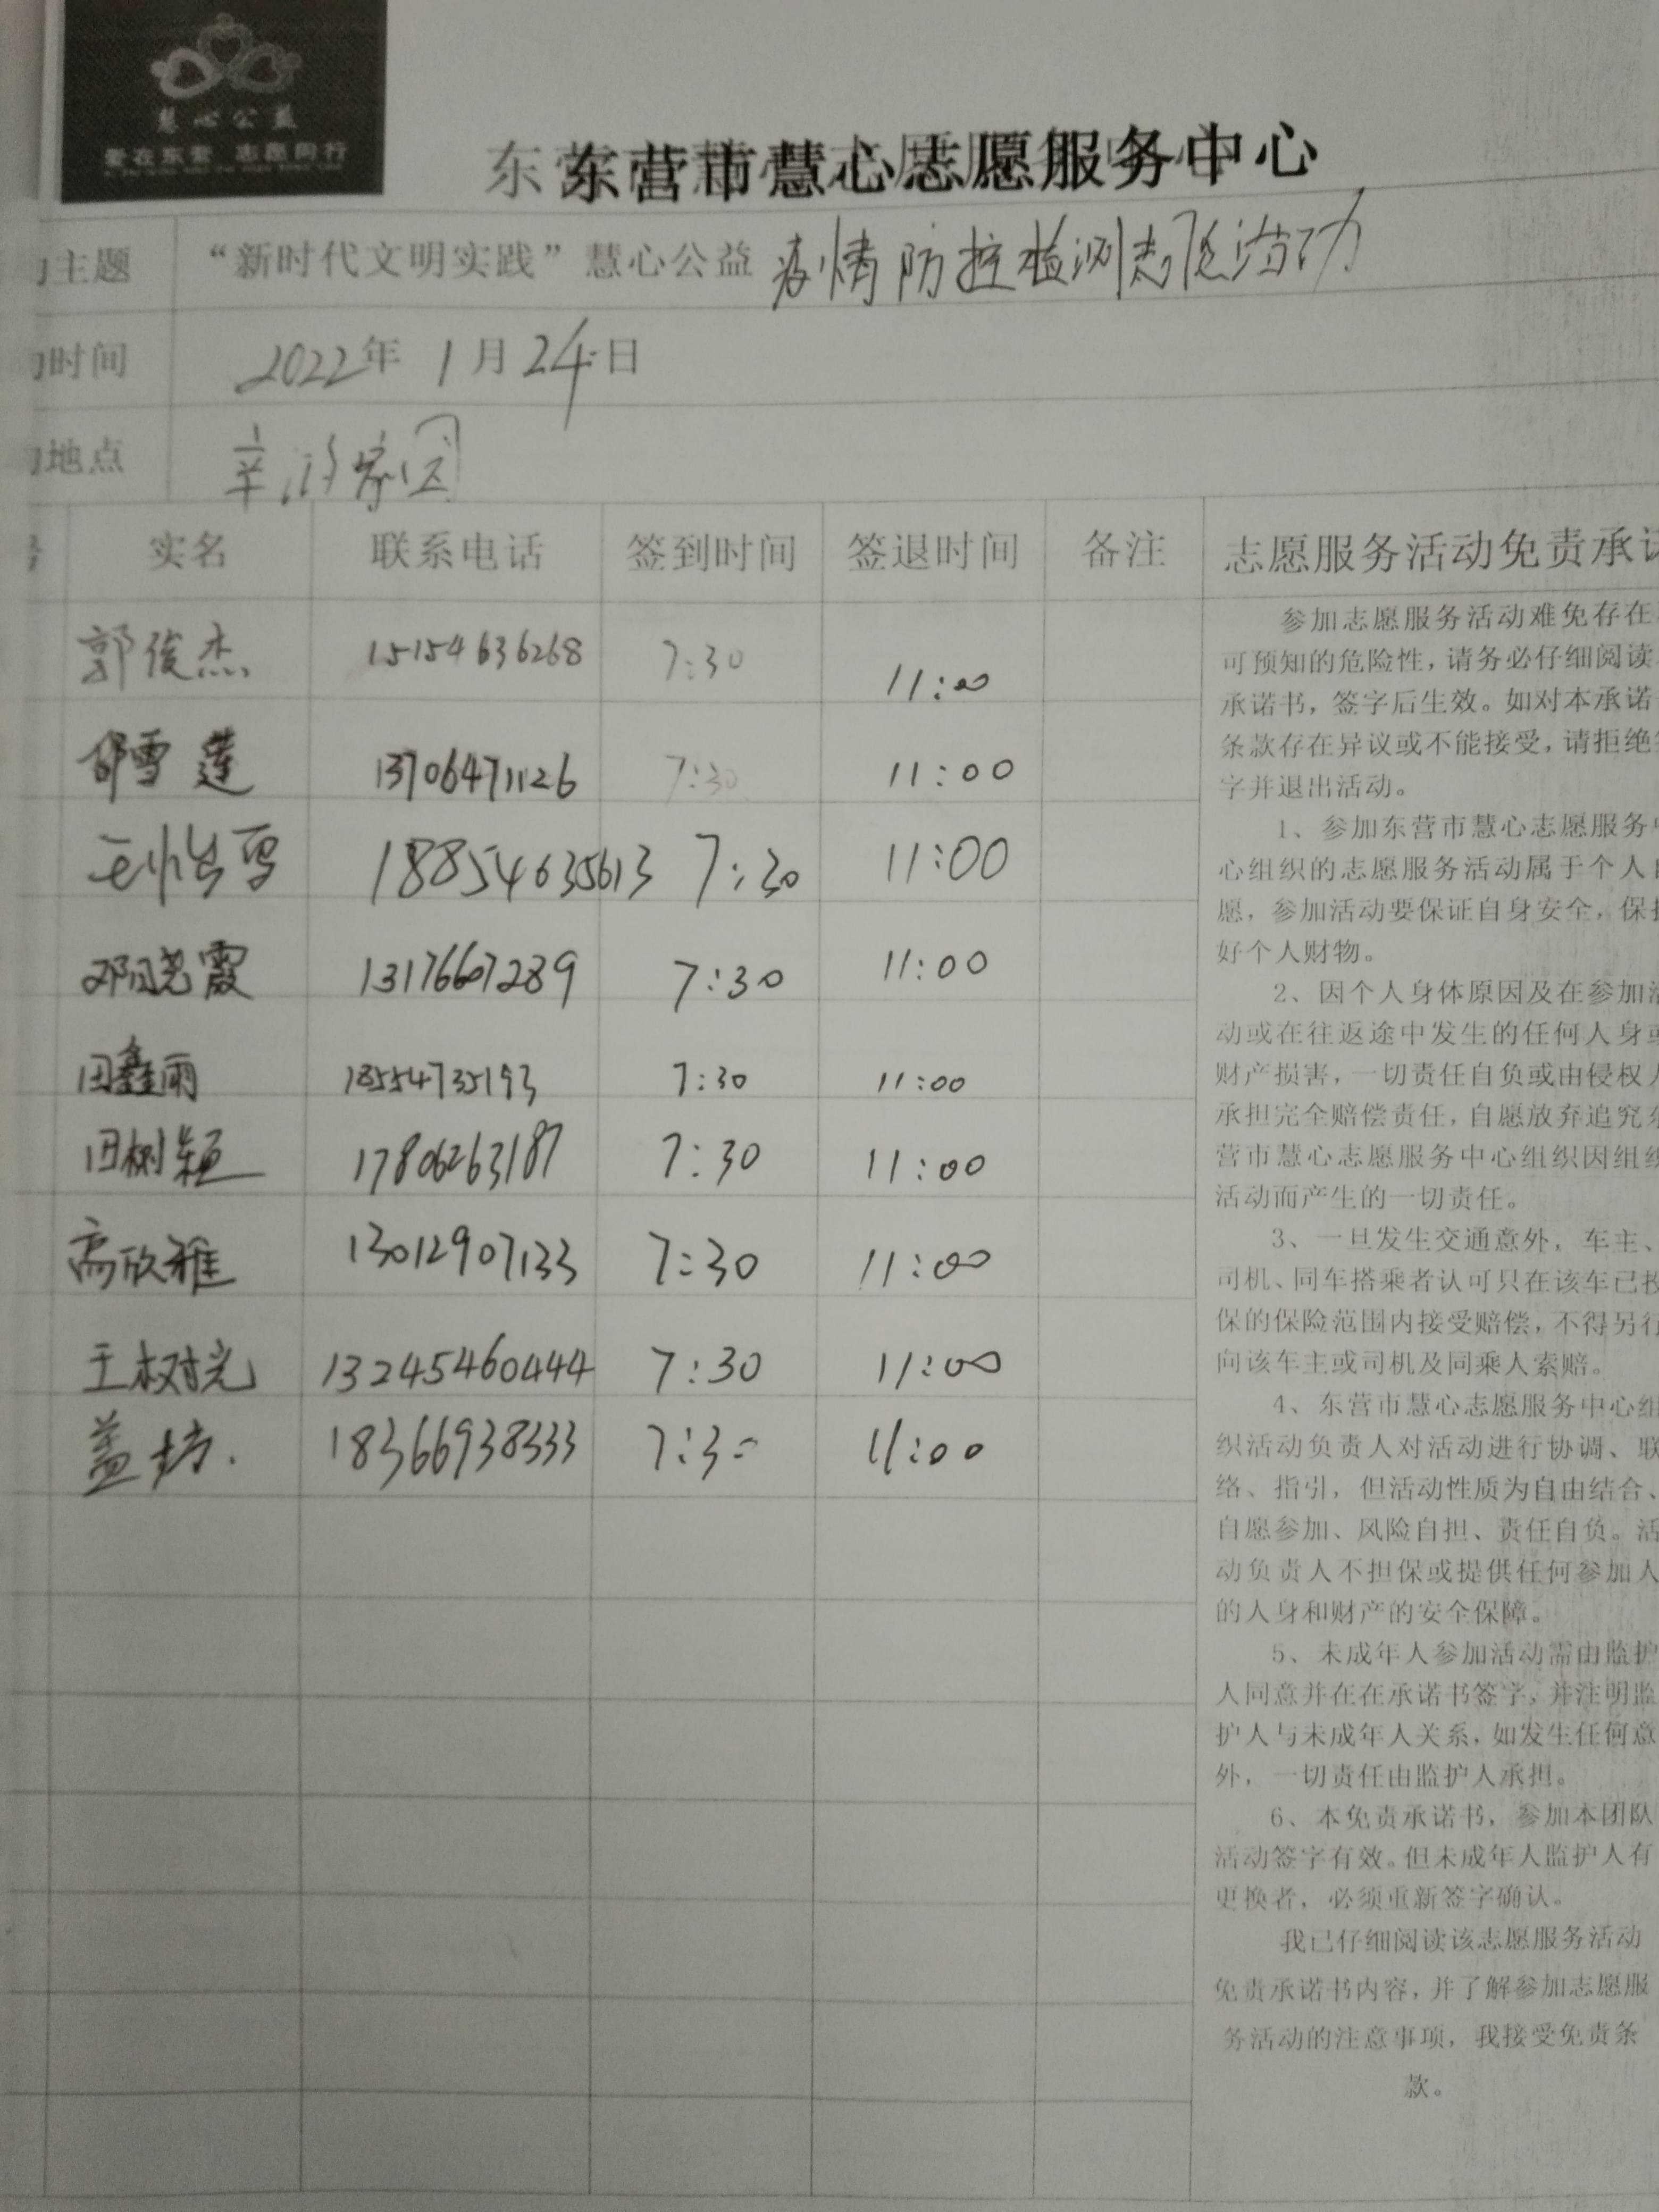 慧心公益
爱在东营 志愿同行
东营市慧心志愿服务中心
主题 “新时代文明实践”慧心公益 疫情防控检测志愿活动
时间 2022年 1月24日
地点 家园
实名 联系电话 签到时间 签退时间 备注 志愿服务活动免责承诺
郭俊杰 15154636268 7:30 11:00
雪莲 13706471126 7:30 11:00
18854635613 7:30 11:00
邓晓霞 13176607289 7:30 11:00
田鑫雨 18554735193 7:30 11:00
田树颖 17806263187 7:30 11:00
高欣雅 13012907133 7:30 11:00
王树光 13245460444 7:30 11:00
盖 18366938333 7:30 11:00
参加志愿服务活动难免存在
可预知的危险性，请务必仔细阅读
承诺书，签字后生效。如对本承诺
条款存在异议或不能接受，请拒绝
字并退出活动。
1、参加东营市慧心志愿服务中
心组织的志愿服务活动属于个人自
愿，参加活动要保证自身安全，保护
好个人财物。
2、因个人身体原因及在参加活
动或在往返途中发生的任何人身或
财产损害，一切责任自负或由侵权人
承担完全赔偿责任，自愿放弃追究东
营市慧心志愿服务中心组织因组织
活动而产生的一切责任。
3、一旦发生交通意外，车主、
司机、同车搭乘者认可只在该车已投
保的保险范围内接受赔偿，不得另行
向该车主或司机及同乘人索赔。
4、东营市慧心志愿服务中心组
织活动负责人对活动进行协调、联
络、指引，但活动性质为自由结合、
自愿参加、风险自担、责任自负。活
动负责人不担保或提供任何参加人
的人身和财产的安全保障。
5、未成年人参加活动需由监护
人同意并在在承诺书签字，并注明监
护人与未成年人关系，如发生任何意
外，一切责任由监护人承担。
6、本免责承诺书，参加本团队
活动签字有效。但未成年人监护人有
更换者，必须重新签字确认。
我已仔细阅读该志愿服务活动
免责承诺书内容，并了解参加志愿服
务活动的注意事项，我接受免责条
款。